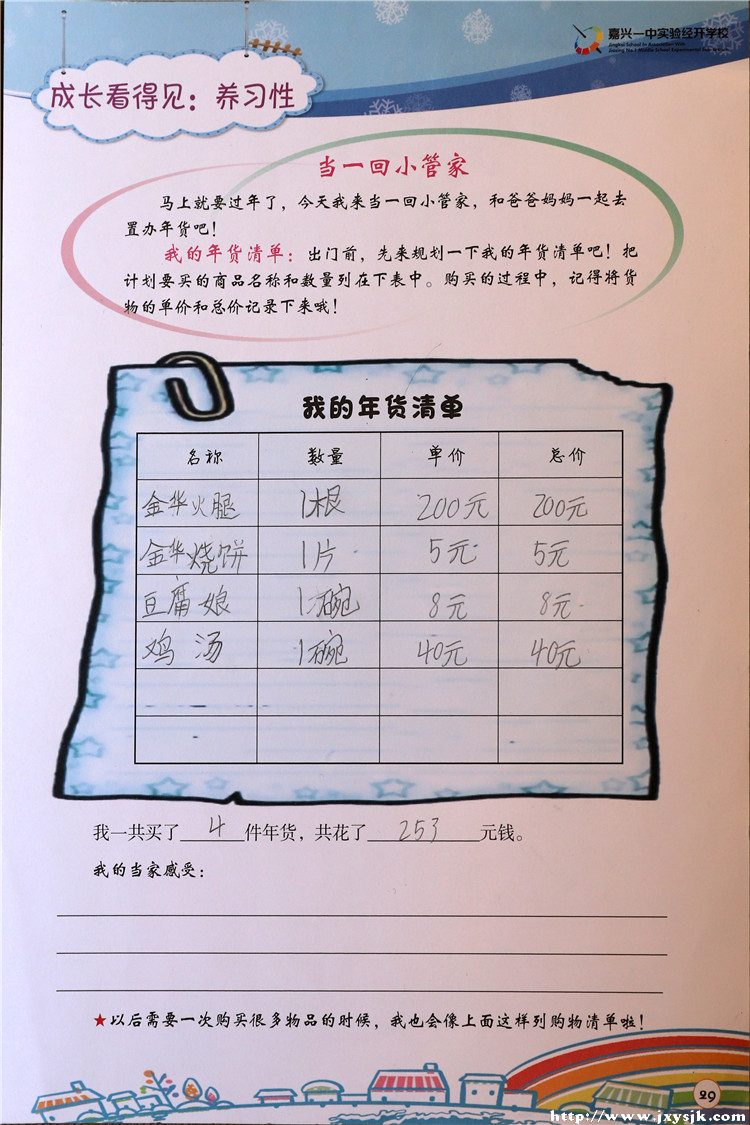 嘉兴一中实验经开学校
成长看得见：养习性
当一回小管家
马上就要过年了，今天我来当一回小管家，和爸爸妈妈一起去
置办年货吧！
我的年货清单：出门前，先来规划一下我的年货清单吧！把
计划要买的商品名称和数量列在下表中。购买的过程中，记得将货
物的单价和总价记录下来哦！
我的年货清单
名称 数量 单价 总价
金华火腿 1根 200元 200元
金华烧饼 1片 5元 5元
豆腐娘 1碗 8元 8元
鸡汤 1碗 40元 40元
我一共买了 4 件年货，共花了 253 元钱。
我的当家感受：
★以后需要一次购买很多物品的时候，我也会像上面这样列购物清单啦！
29
http://www.jxysjk.com